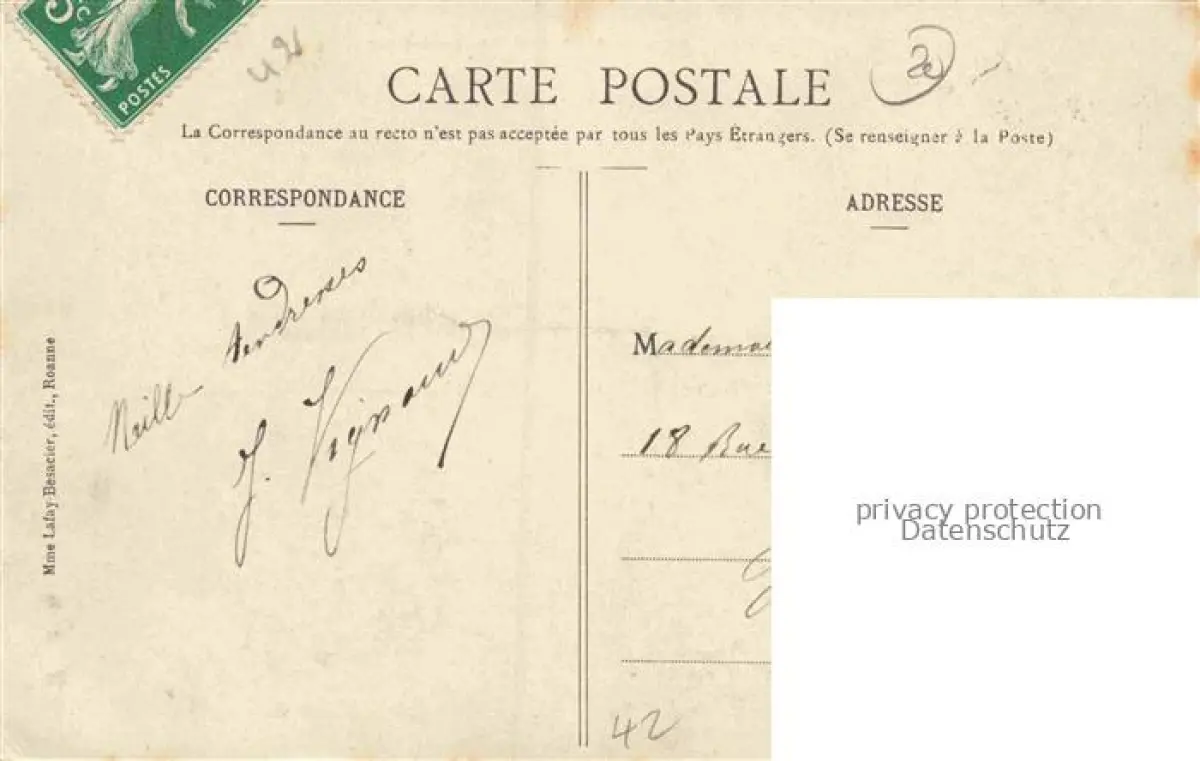 5c
POSTES
42
CARTE POSTALE
La Correspondance au recto n'est pas acceptée par tous les Pays Étrangers. (Se renseigner à la Poste)
CORRESPONDANCE
Mille tendresses
J. Vignaud
Mme Lafay-Besacier, édit., Roanne
ADRESSE
Mademoi
18 Rue
42
privacy protection
Datenschutz